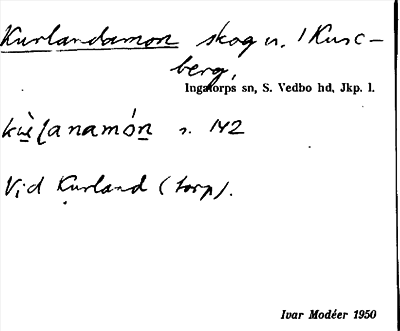 Kurlandamon skog u. Kusc-
berg,
Ingatorps sn, S. Vedbo hd, Jkp. l.
s. 142
Vid Kurland (torp).
Ivar Modéer 1950